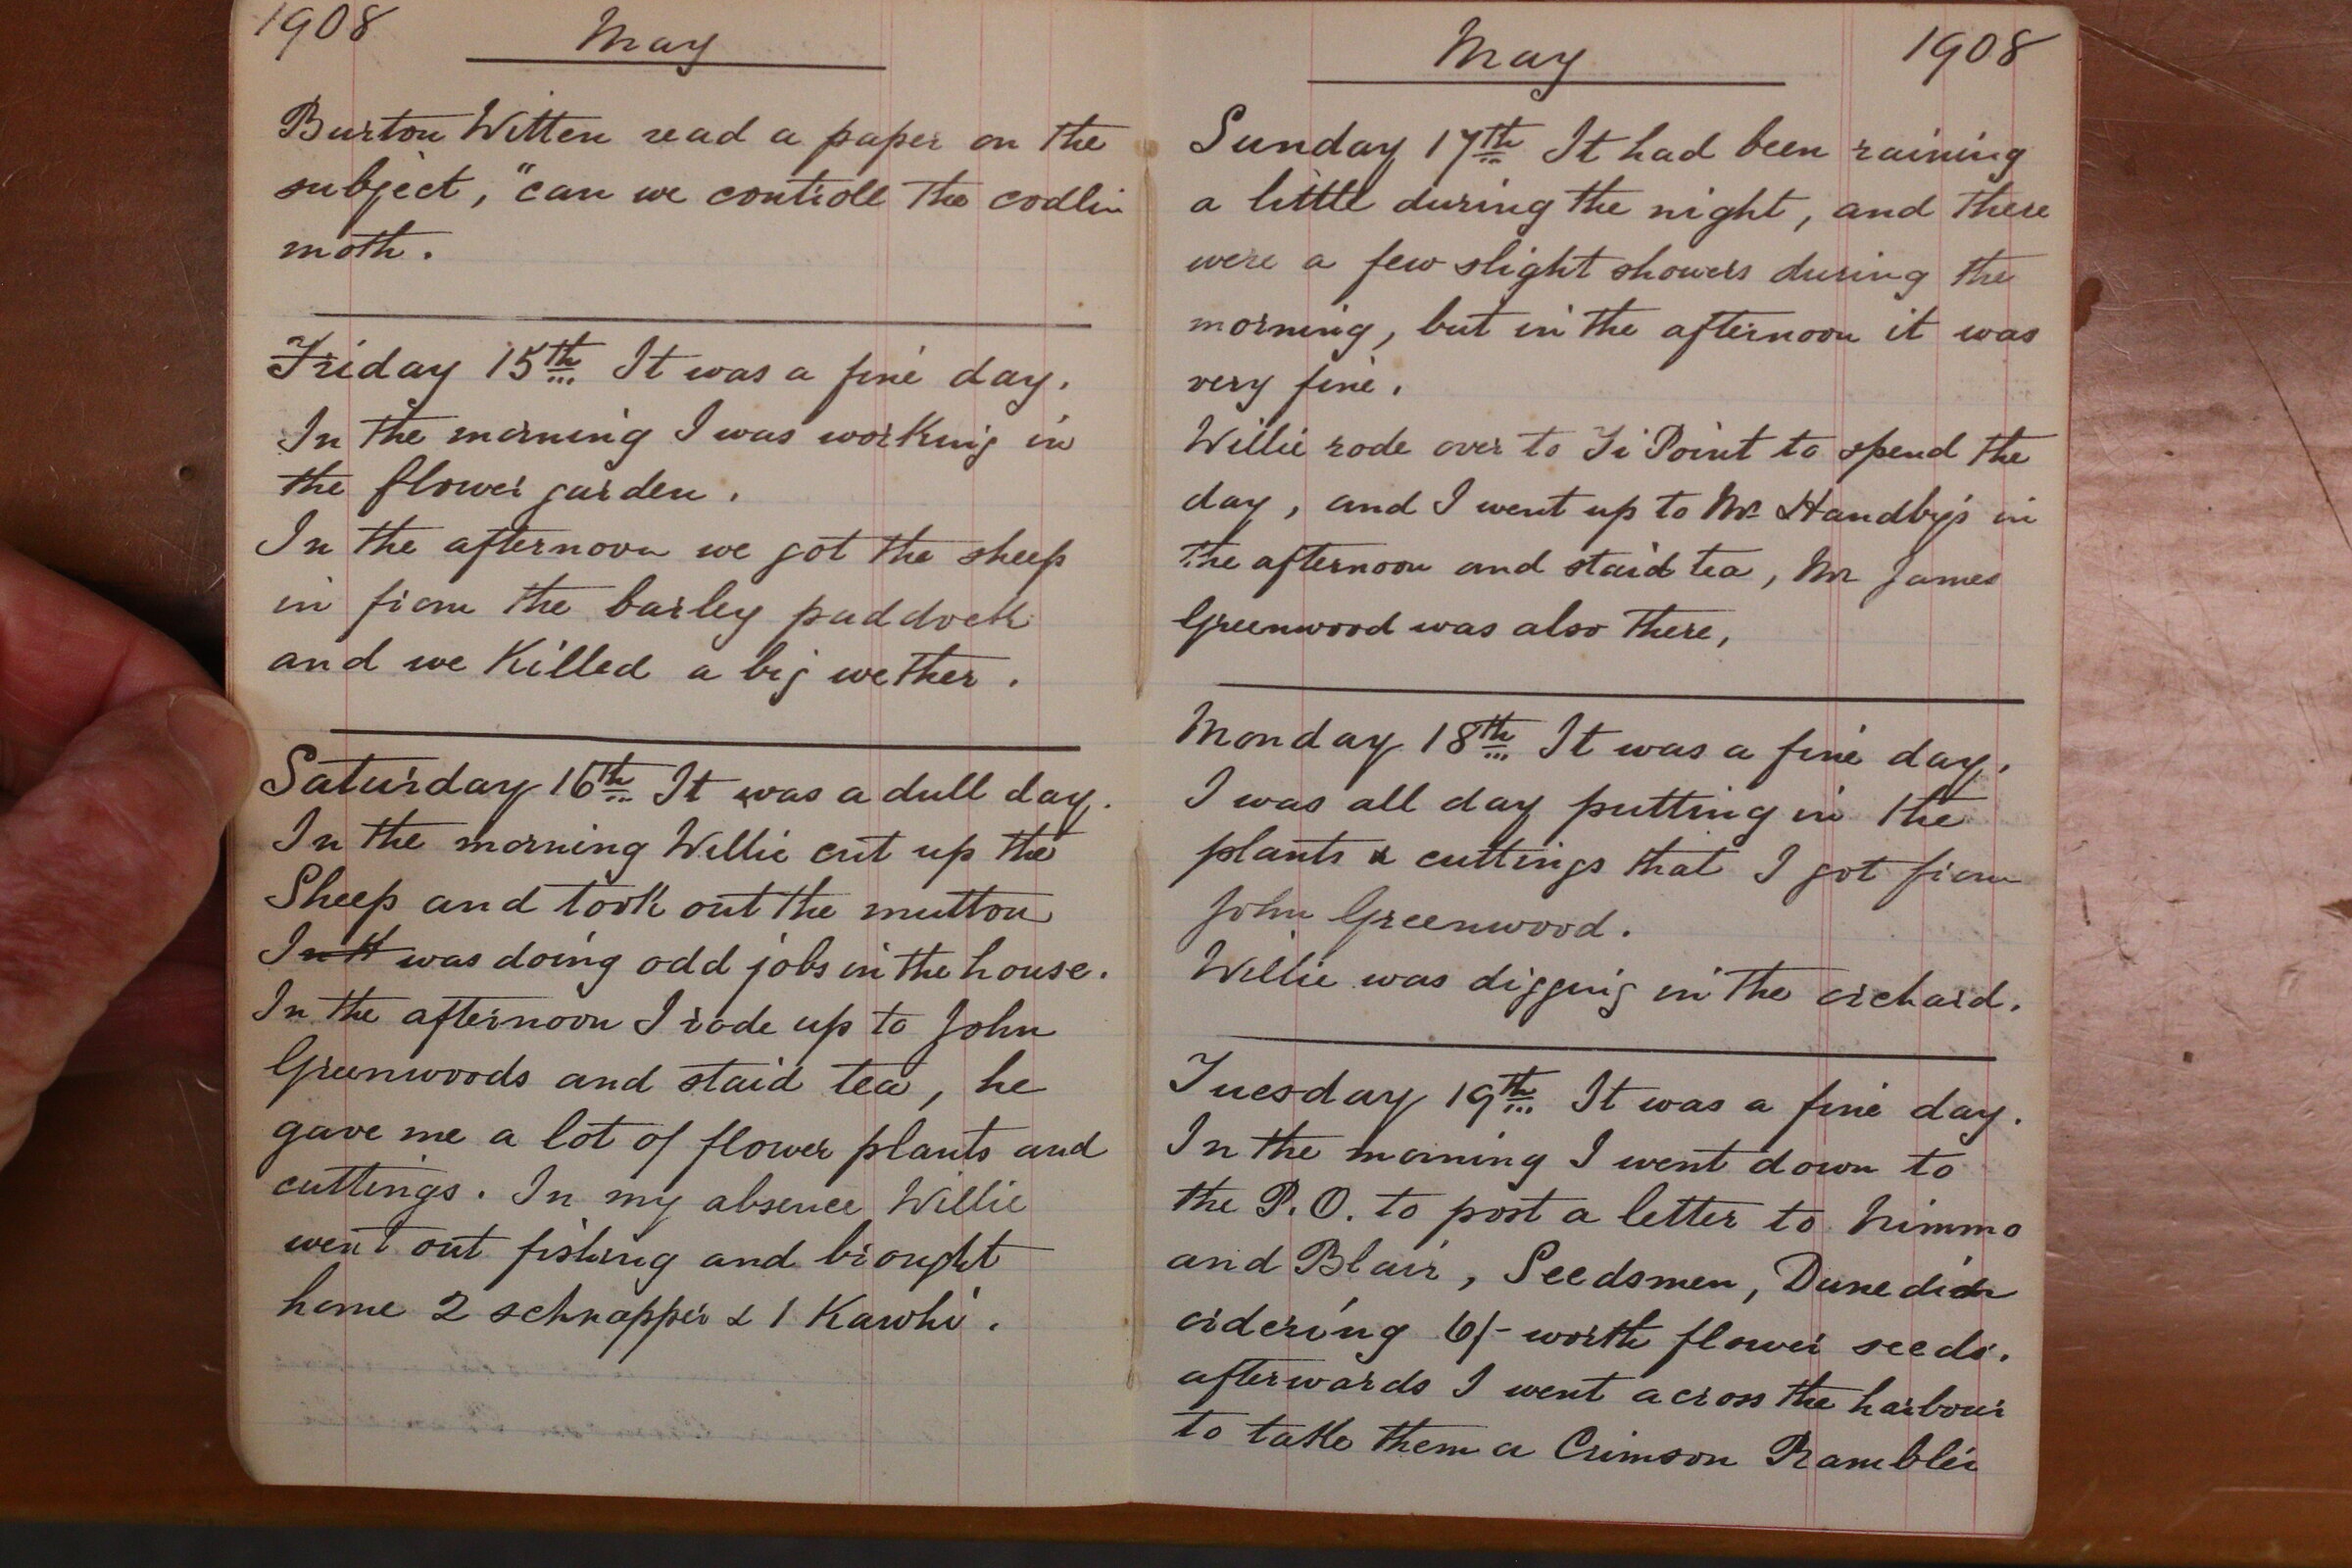 1908 May
Burton Witten read a paper on the
subject, "can we controle the codlin
moth.
Friday 15th It was a fine day.
In the morning I was working in
the flower garden.
In the afternoon we got the sheep
in from the barley paddock
and we killed a big wether.
Saturday 16th It was a dull day.
In the morning Willie cut up the
Sheep and took out the mutton
I was doing odd jobs in the house.
In the afternoon I rode up to John
Greenwoods and staid tea, he
gave me a lot of flower plants and
cuttings. In my absence Willie
went out fishing and brought
home 2 schnapper & 1 Kawhi.
May 1908
Sunday 17th It had been raining
a little during the night, and there
were a few slight showers during the
morning, but in the afternoon it was
very fine.
Willie rode over to Ti Point to spend the
day, and I went up to Mr Handby's in
the afternoon and staid tea, Mr James
Greenwood was also there,
Monday 18th It was a fine day.
I was all day putting in the
plants & cuttings that I got from
John Greenwood.
Willie was digging in the orchard.
Tuesday 19th It was a fine day.
In the morning I went down to
the P.O. to post a letter to Nimmo
and Blair, Seedsmen, Dunedin
ordering 6/- worth flower seeds.
afterwards I went across the harbour
to take them a Crimson Rambler